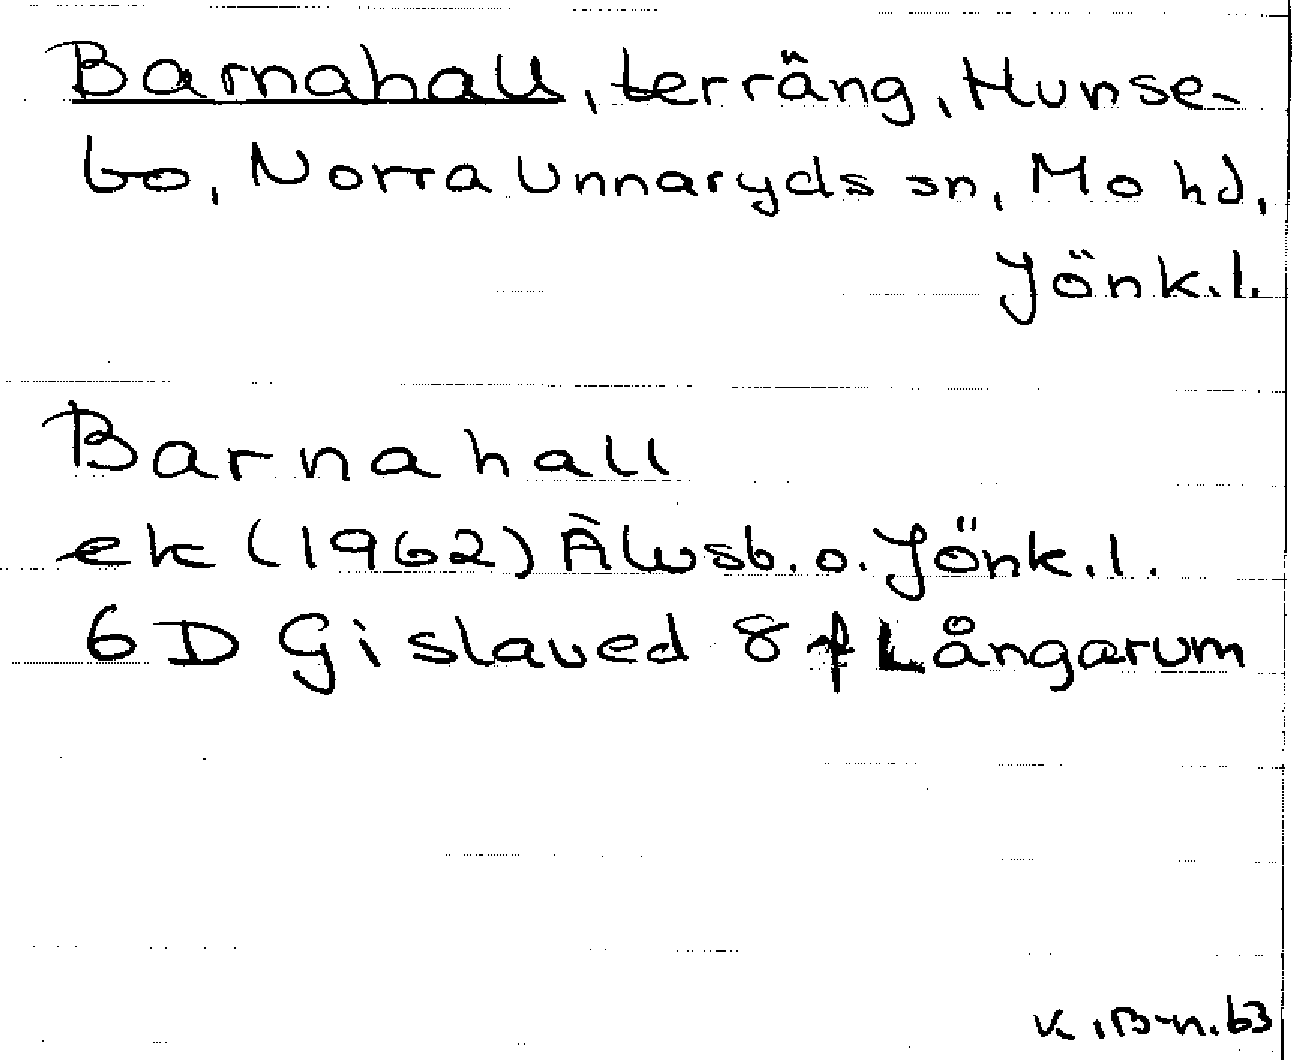 Barnahall, terräng, Hunse-
bo, Norra Unnaryds sn, Mo hd,
Jönk.l.
Barnahall
ek (1962) Älvsb. o. Jönk.l.
6D Gislaved 8f Långarum
K.B-n.63